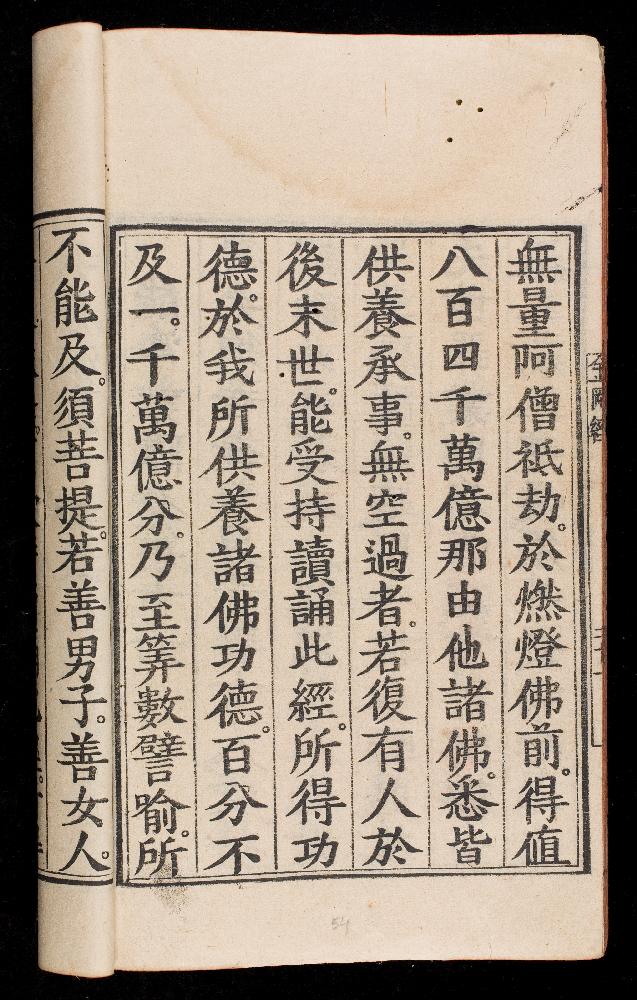 無量阿僧祇劫。於燃燈佛前。得值
八百四千萬億那由他諸佛。悉皆
供養承事。無空過者。若復有人於
後末世。能受持讀誦此經。所得功
德。於我所供養諸佛功德。百分不
及一。千萬億分。乃至筭數譬喻。所
不能及。須菩提。若善男子。善女人。
54